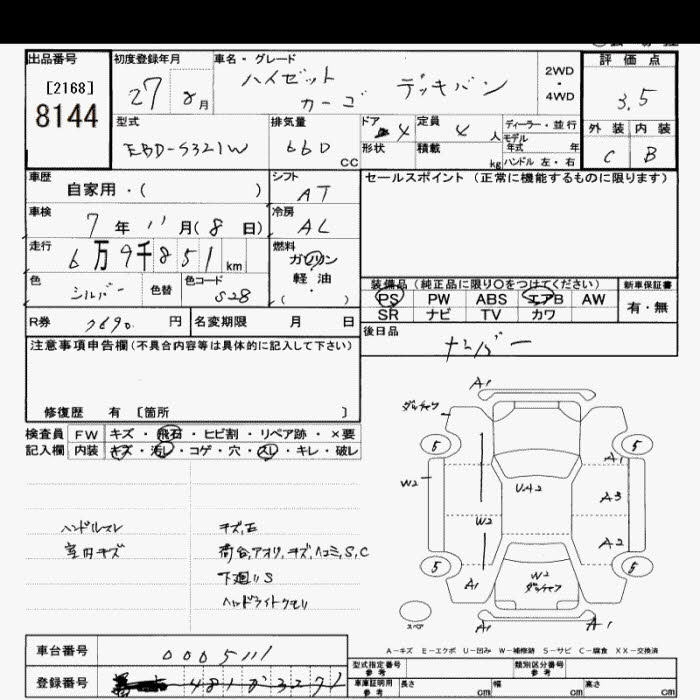 出品番号 初度登録年月 車名・グレード 2WD・4WD 評価点
[2168] 27 8月 ハイゼット カーゴ デッキバン 3.5
8144
型式 排気量 ドア 4 定員 4人 ディーラー・並行 外装 内装
EBD-S321W 660 CC 形状 積載 kg モデル年式 年 ハンドル 左・右 C B
車歴 自家用・( ) シフト AT セールスポイント(正常に機能するものに限ります)
車検 7年11月(8日) 冷房 AC
走行 6万9千851km 燃料 ガソリン・軽油 ( ・ )
色 シルバー 色替 色コード S28 装備品(純正品に限り○をつけてください) 新車保証書
PS PW ABS エアB AW 有・無
SR ナビ TV カワ
R券 7690円 名変期限 月 日 後日品 ナンバー
注意事項申告欄(不具合内容等は具体的に記入して下さい)
修復歴 有 [箇所 ]
検査員 FW キズ・飛石・ヒビ割・リペア跡・×要
記入欄 内装 キズ・汚レ・コゲ・穴・スレ・キレ・破レ
A1
5 5
A1
W2 UA2 A3
W2 A2
5 5
A1 W2
スペア A1 A1
ハンドルスレ キズ,E
室内キズ 荷台,アオリ,キズ,ヘコミ,S,C
下廻りS
ヘッドライトクモリ
A-キズ E-エクボ U-凹み W-補修跡 S-サビ C-腐食 XX-交換済
車台番号 0005111 型式指定番号 参考 類別区分番号 参考
登録番号 車庫証明用 参考 長さ cm 幅 cm 高さ cm